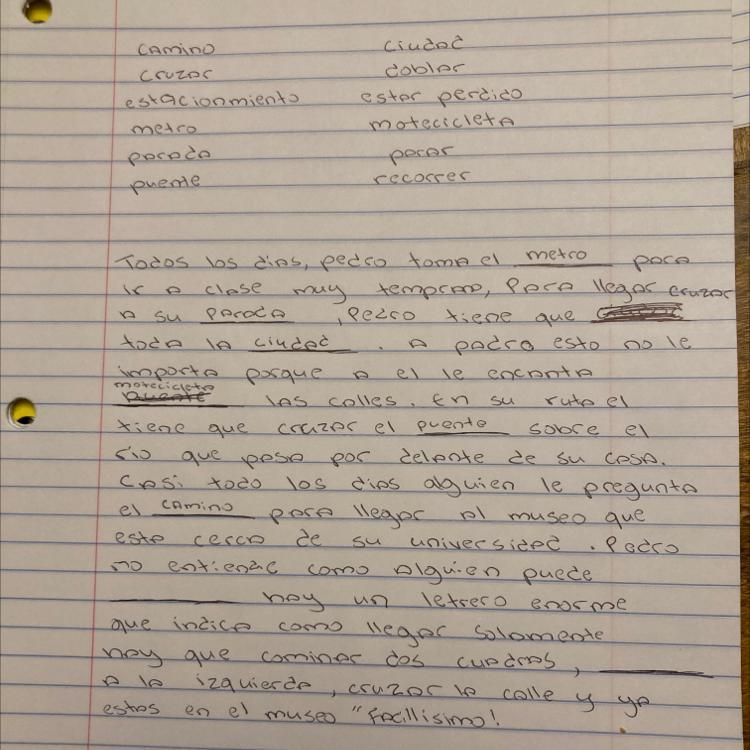 camino ciudad
cruzar doblar
estacionmiento estar perdido
metro motecicleta
parada parar
puente recorrer
Todos los dias, pedro toma el metro para
ir a clase muy temprao, Para llegar cruzar
a su Parada , Pedro tiene que
toda la ciudad . A padro esto no le
importa porque a el le encanta
motecicleta
puente las calles. En su ruta el
tiene que cruzar el puente sobre el
rio que pasa por delante de su casa.
Casi todo los dias alguien le pregunta
el camino para llegar al museo que
esta cerca de su universidad . Pedro
no entiende como alguien puede
hay un letrero enorme
que indica como llegar solamente
hay que caminar dos cuadras,
a la izquierda, cruzar la calle y ya
estas en el museo "facillisimo!